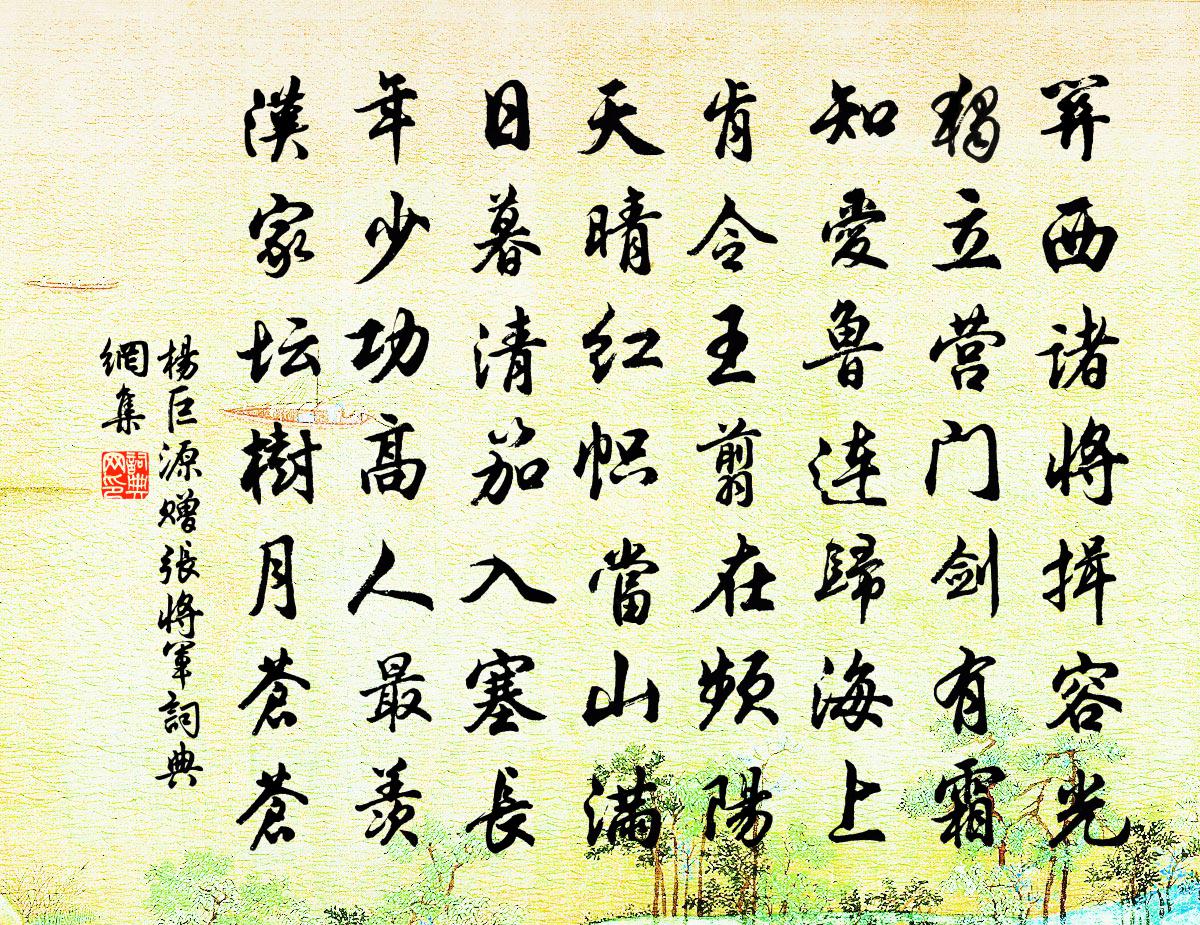 関西诸将揖容光
獨立营门剑有霜
知愛鲁连歸海上
肯令王翦在频陽
天晴红帜當山满
日暮清笳入塞長
年少功高人最羡
漢家坛樹月蒼蒼
楊巨源赠張將軍詞典
網集
詞典网印